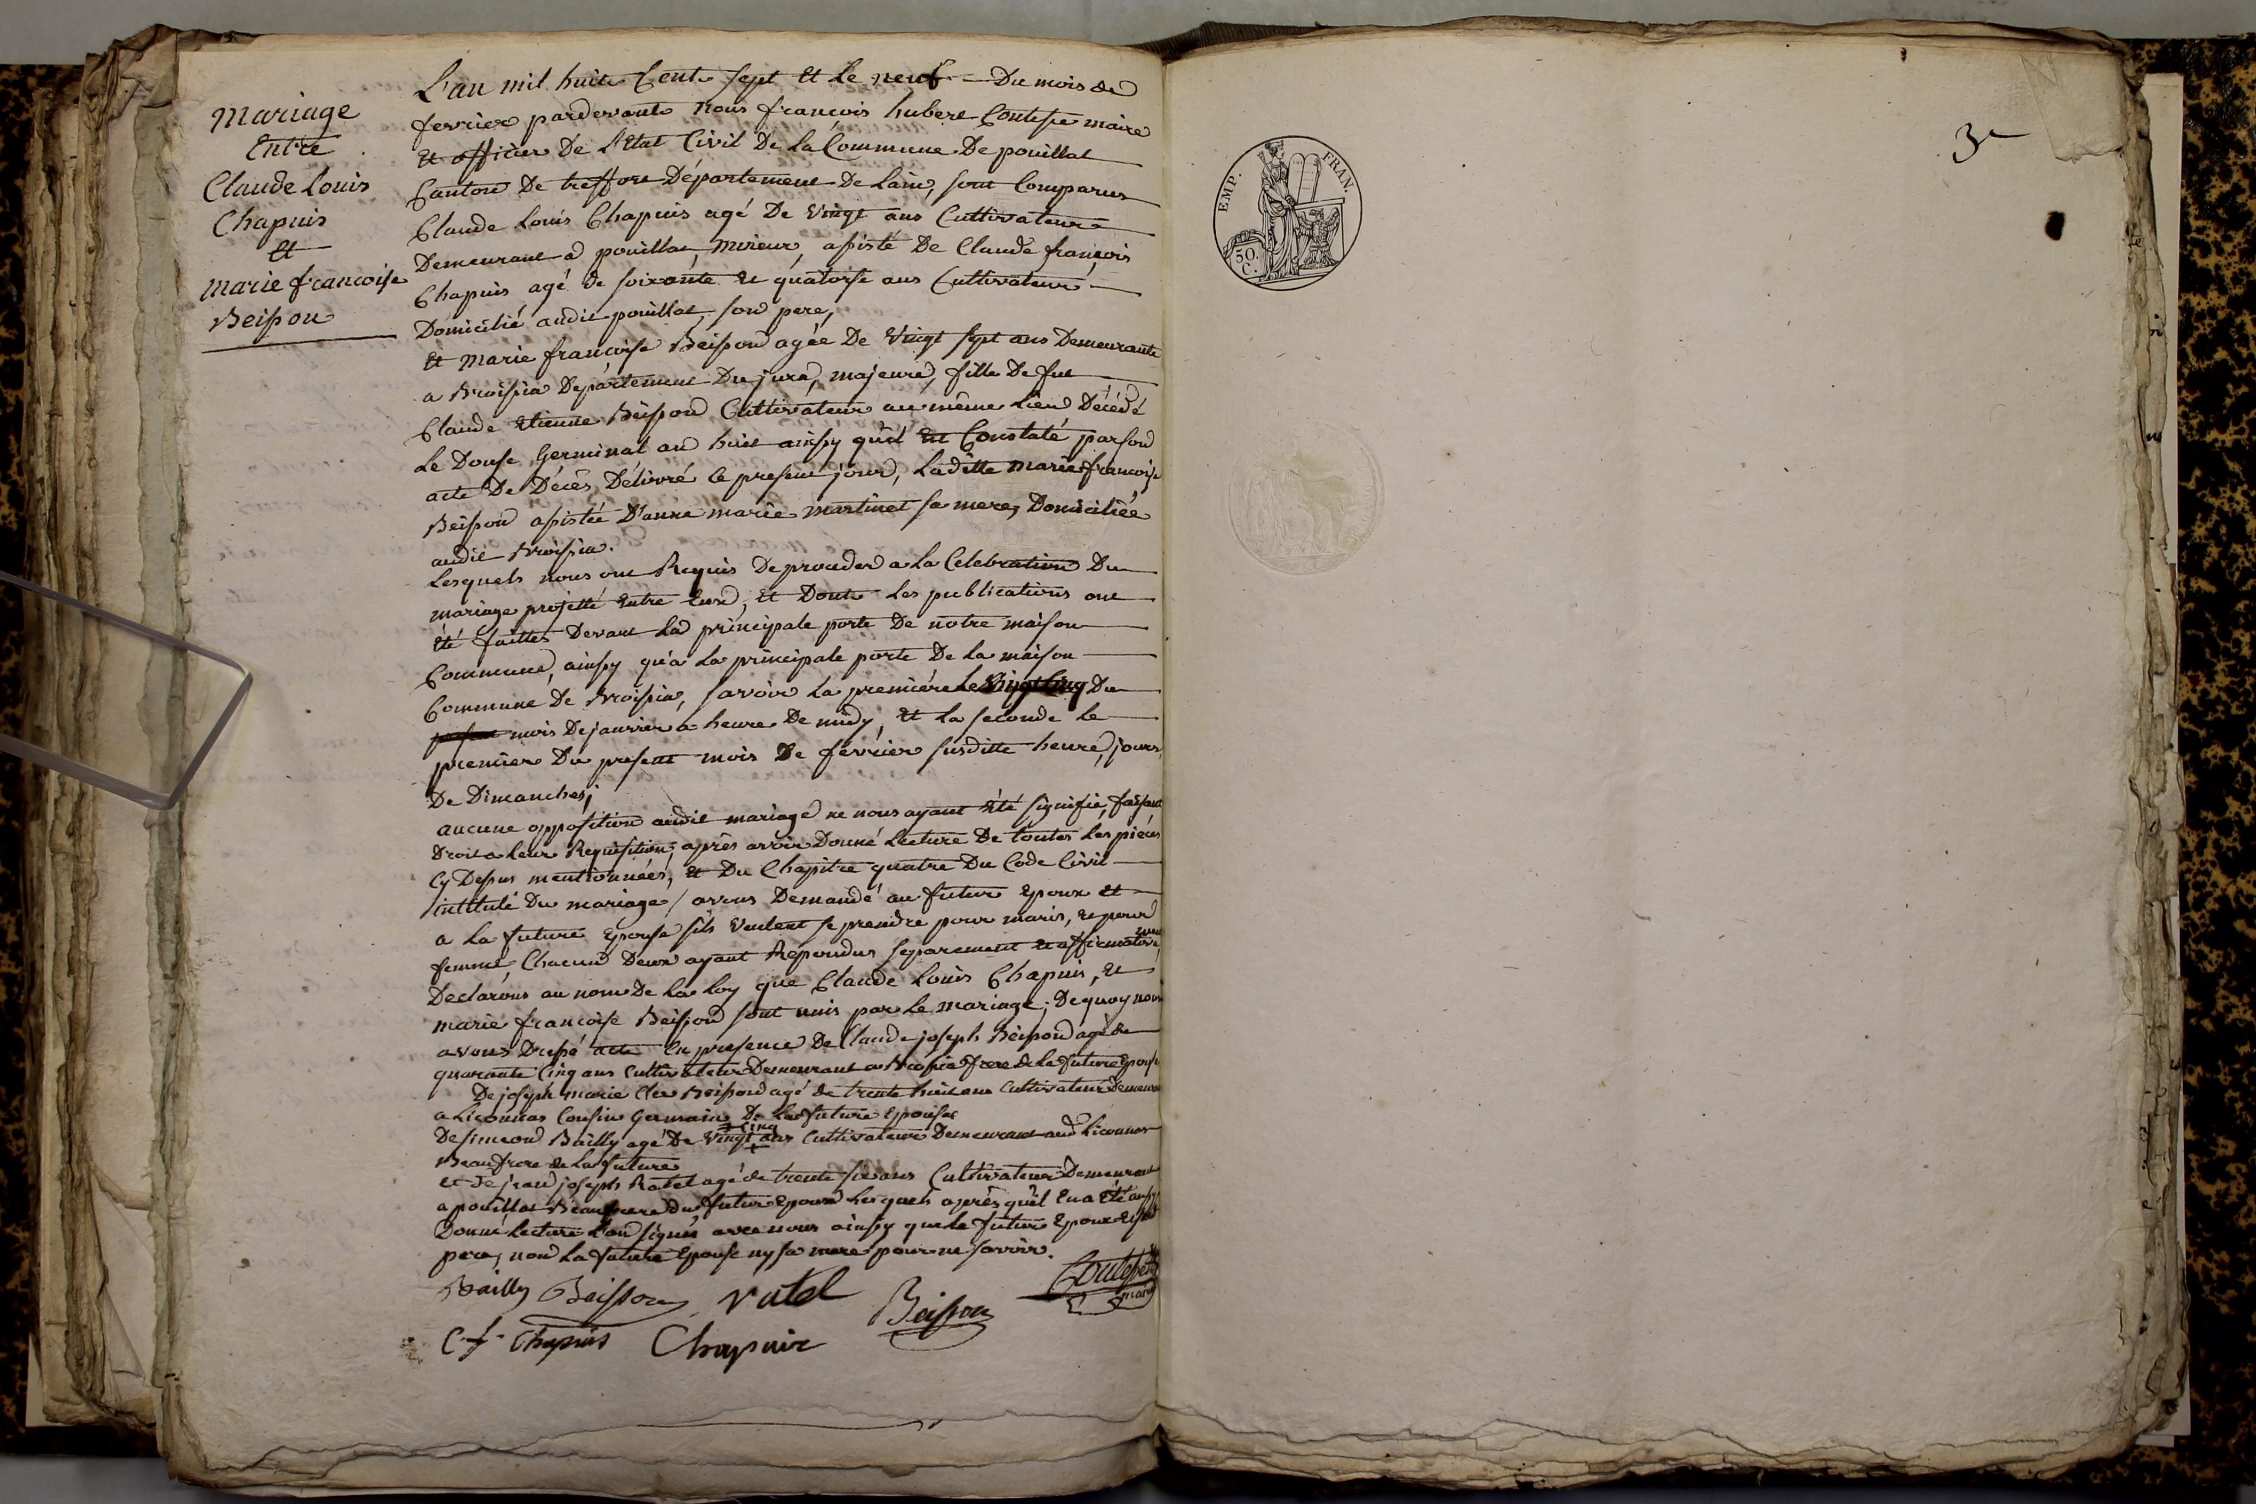 Mariage
Entre
Claude Louis
Chapuis
Et
Marie francoise
Beisson
L'an mil huit Cent sept Et Le neuf Du mois de
fevrier pardevant Nous francois hubert maire
Et officier De L'Etat Civil De La Commune De pouillat
Canton De treffort Département De Lain, sont Comparus
Claude Louis Chapuis agé De Vingt ans Cultivateur
Demeurant a pouillat, Mineur, assisté De Claude francois
Chapuis agé de soixante Et quatorse ans Cultivateur
Domicilié audit pouillat, son pere,
Et Marie francoise Beisson agée De Vingt sept ans Demeurante
a Broissia Departement Du jura, majeure, fille De fut
Claude Etienne Beisson Cultivateur au même Lieu Décédé
Le Douse Germinal an huit ainsy qu'il Est Constaté par son
acte De Décès Délivré Ce present jour, Laditte Marie francoise
Beisson assistée D'anne marie martinet sa mere, Domiciliée
audit Broissia.
Lesquels nous ont Requis De proceder a La Celebration Du
mariage projetté Entre Eux, Et Dont Les publications ont
Eté faittes Devant La principale porte De notre maison
Commune, ainsy qu'a La principale porte De la maison
Commune De Broissia, savoir La premiére Le Vingt Cinq Du
present mois De janvier a heure De midy, Et La seconde Le
premier Du present mois De février susditte heure, jours
De Dimanches;
aucune opposition audit mariage ne nous ayant Eté signifié, faisant
Droit a Leur Requisition, après avoir Donné Lecture De toutes Les piéces
Cy Dessus mentionnées, Et Du Chapitre quatre Du Code Civil
intitulé Du mariage / avons Demandé au futur Epoux et
a La future Epouse s'ils Veulent se prendre pour maris, Et pour
femme, Chacun Deux ayant Repondus separement Et affirmative
ment
Declarons au nom De La Loy que Claude Louis Chapuis, Et
marie francoise Beisson sont unis par Le mariage; De quoy nous
avons Dressé acte En presence De Claude joseph Beisson agé de
quarante Cinq ans Cultivateur Demeurant a Broissia frere de La future Epouse
De joseph marie Beisson agé de trente huit ans Cultivateur Demeurant
a Liconnas Cousin Germain De La future Epouse
Cinq
De simeond Bailly agé De Vingt ans Cultivateur Demeurant aud Liconnas
Beaufrere de La future
et De jean joseph Ratel agé de trente six ans Cultivateur Demeurant
a pouillat Beaufrere du futur Epoux Lesquels après qu'il En a Eté aussy
Donné Lecture L'on signés avec nous ainsy que Le futur Epoux Et son
pere, non La future Epouse ny sa mere pour ne savoir.
Bailly Beisson ratel Beisson
maire
C f Chapuis Chapuis
EMP. FRAN.
50. C.
3